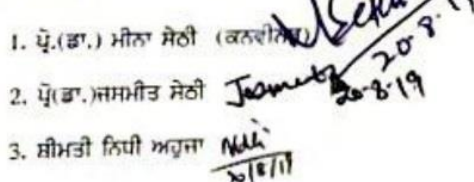 1. ਪ੍ਰੋ.(ਡਾ.) ਮੀਨਾ ਸੇਠੀ (ਕਨਵੀਨਰ) 20-8-19
2. ਪ੍ਰੋ(ਡਾ.)ਜਸਮੀਤ ਸੇਠੀ Jasmeet 20-8-19
3. ਸ਼੍ਰੀਮਤੀ ਨਿਧੀ ਅਹੂਜਾ Nidhi 20/8/19